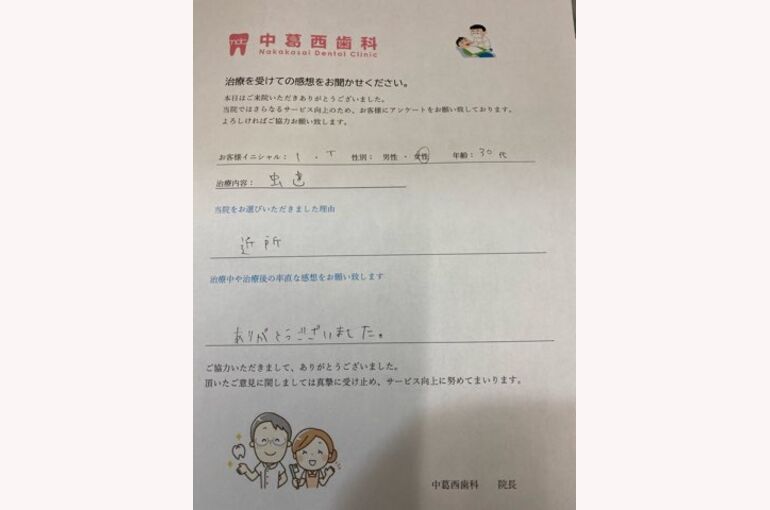 ndc 中葛西歯科
Nakakasai Dental Clinic
治療を受けての感想をお聞かせください。
本日はご来院いただきありがとうございました。
当院ではさらなるサービス向上のため、お客様にアンケートをお願い致しております。
よろしければご協力お願い致します。
お客様イニシャル： 　. T 性別： 男性 ・ 女性 年齢：30代
治療内容： 虫歯
当院をお選びいただきました理由
近所
治療中や治療後の率直な感想をお願い致します
ありがとうございました。
ご協力いただきまして、ありがとうございました。
頂いたご意見に関しましては真摯に受け止め、サービス向上に努めてまいります。
中葛西歯科 院長